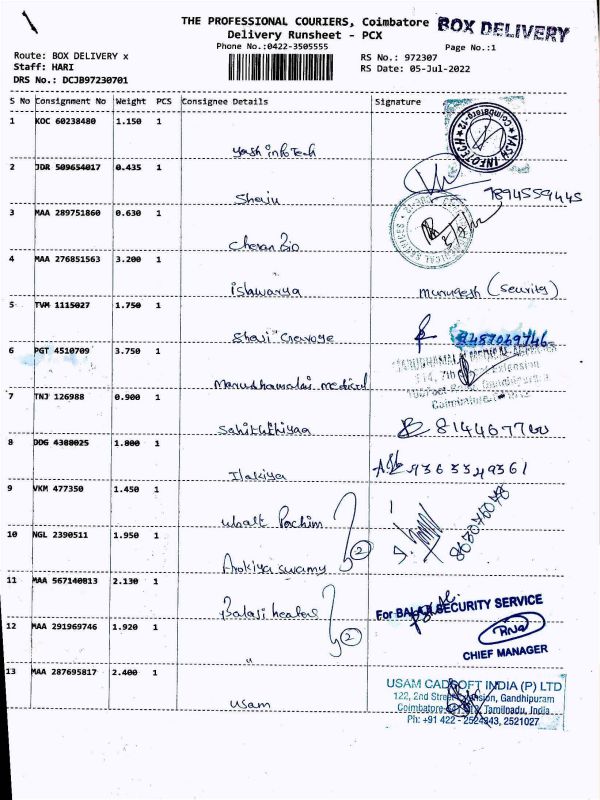 THE PROFESSIONAL COURIERS, Coimbatore
BOX DELIVERY
Delivery Runsheet - PCX
Phone No.:0422-3505555
Page No.:1
Route: BOX DELIVERY x
RS No.: 972307
Staff: HARI
RS Date: 05-Jul-2022
DRS No.: DCJB97230701
S No Consignment No Weight PCS Consignee Details Signature
1 KOC 60238480 1.150 1
Yash infoTech
YASH INFOTECH Coimbatore-12
2 JDR 509654017 0.435 1
Shaiju
7894559445
3 MAA 289751860 0.630 1
Cheran Bio
4 MAA 276851563 3.200 1
ishwarya
Murugesh (Security)
5 TVM 1115027 1.750 1
Shaji George
9487069746
6 PGT 4510709 3.750 1
Marudhamalai medical
Extension
7 TNJ 126988 0.900 1
8 DDG 4308025 1.800 1
Ilakiya
9363349361
9 VKM 477350 1.450 1
10 NGL 2390511 1.950 1
Arokiya swamy
2
11 MAA 567140813 2.130 1
Balaji healers
For BALAJI SECURITY SERVICE
12 MAA 291969746 1.920 1
2
"
CHIEF MANAGER
13 MAA 287695817 2.400 1
Usam
USAM CADSOFT INDIA (P) LTD
122, 2nd Street Gandhipuram
Coimbatore Tamilnadu, India
Ph: +91 422 - 2524343, 2521027